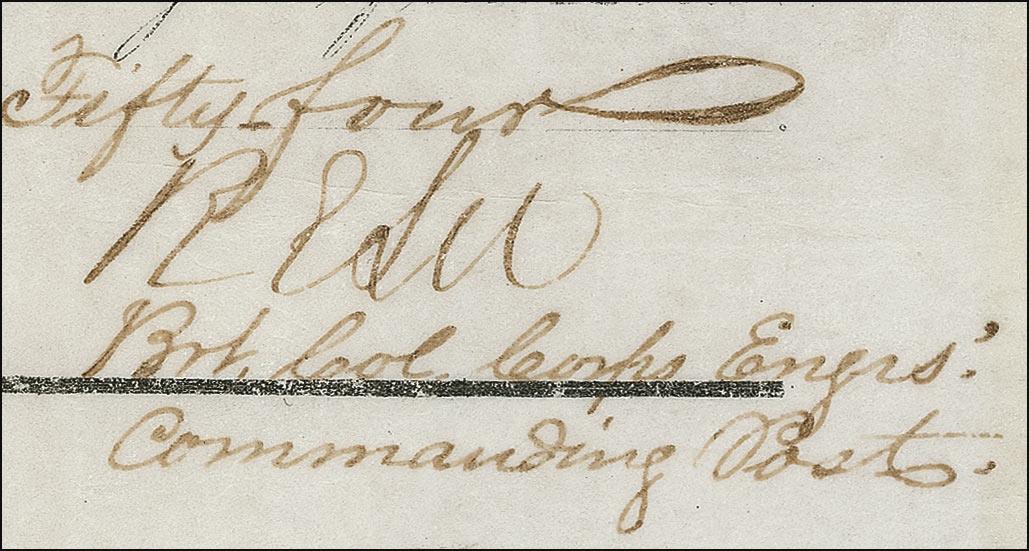 Fifty-four
R E Lee
Brt. Col. Corps Engrs.
Commanding Post.